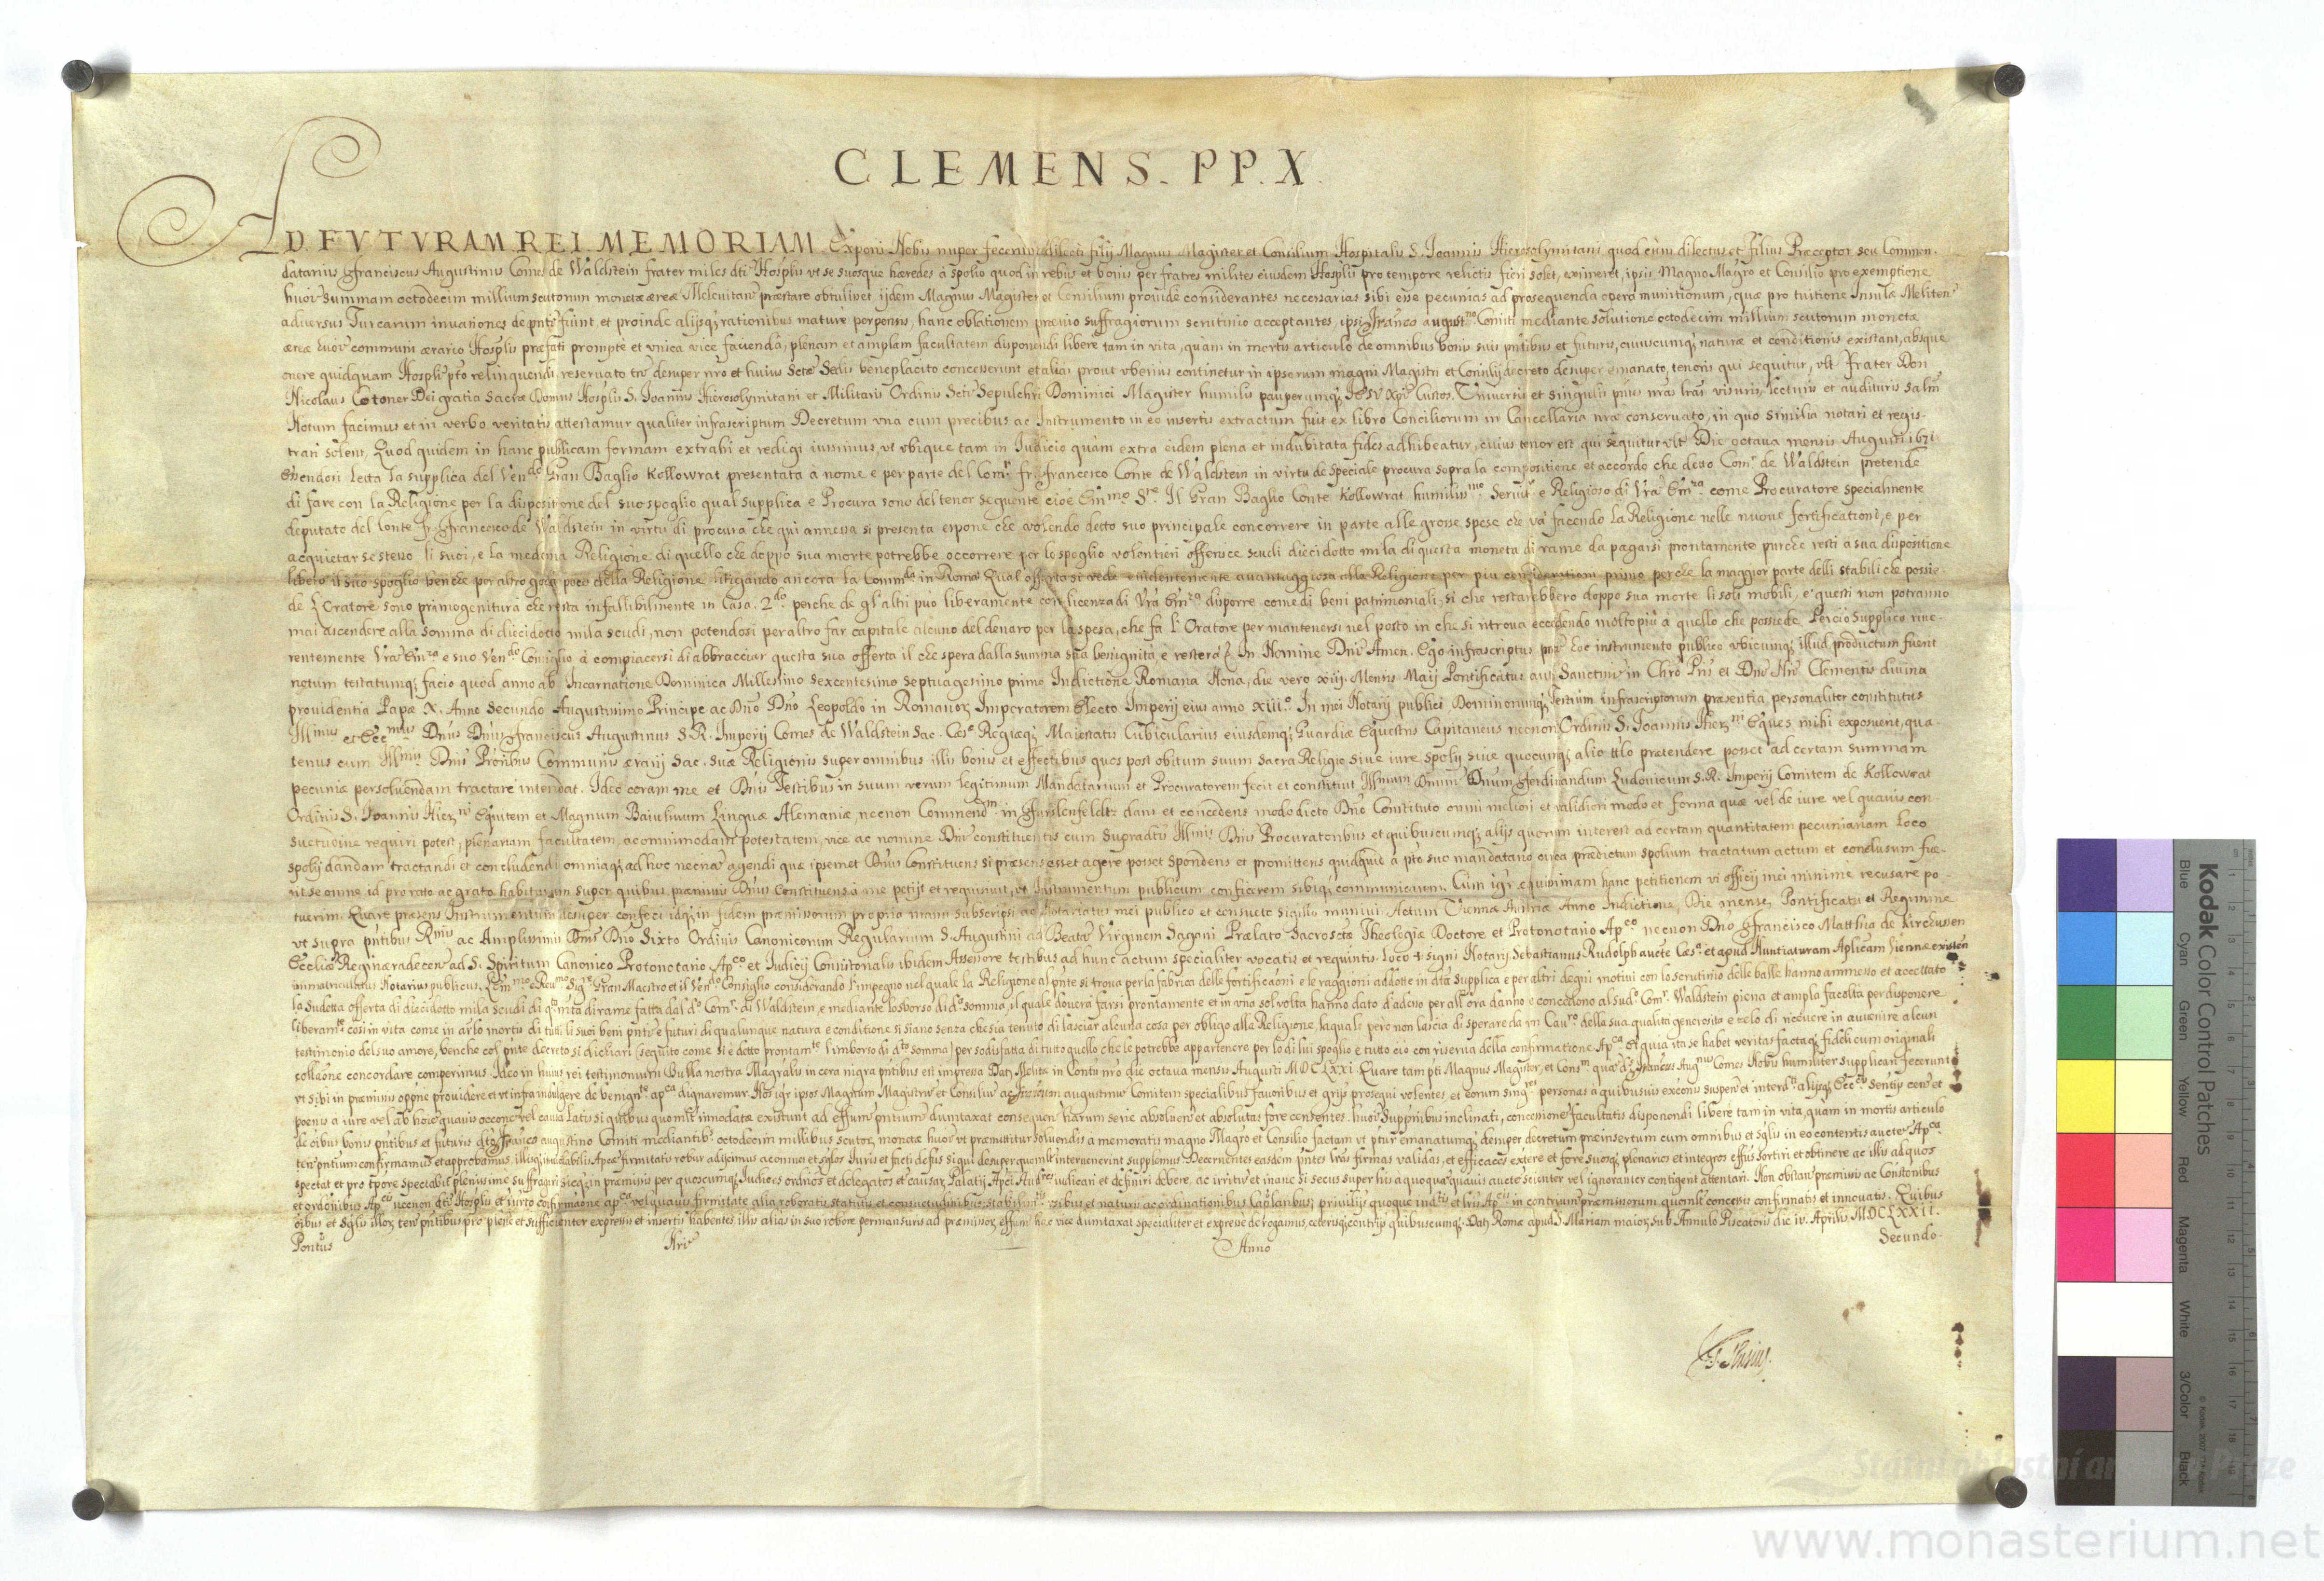 CLEMENS. PP. X.
AD FVTVRAM REI MEMORIAM Exponi Nobis nuper fecerunt dilecti filij Magnus Magister et Consilium Hospitalis S. Joannis Hierosolymitani quod cùm dilectus et Filius Præceptor seu Commen-
datarius ffranciscus Augustinus Comes de Waldstein frater miles dti Hosplis vt se suosque hæredes à spolio quod in rebus et bonis per fratres milites eiusdem Hosplis pro tempore relictis fieri solet, eximeret, ipsis Magno Magro et Consilio pro exemptione
huiõi summam octodecim millium scutorum monetæ æreæ Melevitanæ præstare obtulisset, ijdem Magnus Magister et Consilium prouide considerantes necessarias sibi esse pecunias ad prosequenda opera munitionum, quæ pro tuitione Insulæ Meliten
aduersus Turcarum inuasiones de pnti fiunt, et proinde alijsq; rationibus mature perpensis, hanc oblationem præuio suffragiorum scrutinio acceptantes, ipsi Franco August.no Comiti mediante solutione octodecim millium scutorum monetæ
æreæ huiõi communi ærario Hosplis præfati promptè et vnica vice facienda, plenam et amplam facultatem disponendi libere tam in vita, quàm in mortis articulo de omnibus bonis suis pntibus et futuris, cuiuscumq; naturæ et conditionis existant, absque
onere quidquam Hospli pto relinquendi, reservato tn desuper nro et huius Sctæ Sedis beneplacito concesserunt et alias prout vberius continetur in ipsorum magni Magistri et Consilij decreto desuper emanato, tenoris qui sequitur, vlt Frater Don
Nicolaus Cotoner Dei gratia Sacræ Domus Hosplis S. Joannis Hierosolymitani et Militaris Ordinis Scti Sepulchri Dominici Magister humilis pauperumq; Jesu Xpi Custos. Vniuersis et singulis pntes nras lras visuris, lecturis et audituris saltm
Notum facimus et in verbo veritatis attestamur qualiter infrascriptum Decretum vna cum precibus ac Instrumento in eo insertis extractum fuit ex libro Conciliorum in Cancellaria nra conseruato, in quo similia notari et regis-
trari solent, Quod quidem in hanc publicam formam extrahi et redigi iussimus, vt vbique tam in Judicio quàm extra eidem plena et indubitata fides adhibeatur, cuius tenor est qui sequitur vlt Die octaua mensis Augusti 1671
Essendosi letta la supplica del Ven.do Gran Baglio Kollowrat presentata à nome e per parte del Com.r fr ffrancesco Conte de Waldstein in virtù de speciale procura sopra la compositione et accordo che detto Com.r de Waldstein pretende
di fare con la Religione per la dispositione del suo spoglio qual supplica e Procura sono del tenor sequente cioè Em.mo S.re Il Gran Baglio Conte Kollowrat humiliss.mo Seruit.e e Religioso di Vra Em.za come Procuratore specialmente
deputato del Conte fr. ffrancesco de Waldstein in virtù di procura che qui annessa si presenta espone che volendo detto suo principale concorrere in parte alle grosse spese che và facendo la Religione nelle nuoue fortificationi, e per
acquietar se stesso li suoi, e la medema Religione di quello che doppo sua morte potrebbe occorrere per lo spoglio volontieri offerisce scudi dieci dotto mila di questa moneta di rame da pagarsi prontamente purche resti a sua dispositione
libero il suo spoglio benche per altro goda poco della Religione litigando ancora la Comm.da in Roma Qual offerta si vede euidentemente auantaggiosa alla Religione per piu considerationi primo perche la maggior parte delli stabili che possie-
de l'Oratore sono primogenitura che resta infallibilmente in Casa. 2.do perche de gl'altri può liberamente con licenza di Vra Em.za disporre come di beni patrimoniali, si che restarebbero doppo sua morte li soli mobili, e questi non potranno
mai ascendere alla somma di diecidotto mila scudi, non potendosi per altro far capitale alcuno del denaro per la spesa, che fa l'Oratore per mantenersi nel posto in che si ritroua eccedendo molto più a quello che possiede. Perciò supplica riue-
rentemente Vra Em.za e suo Ven.do Consiglio à compiacersi di abbracciar questa sua offerta il che spera dalla summa sua benignità, e resterà &. In Nomine Dni Amen. Ego infrascriptus pnti hoc instrumento publico vbicunq; illud productum fuerit
notum testatumq; facio quod anno ab Incarnatione Dominica Millesimo sexcentesimo septuagesimo primo Indictione Romana Nona, die vero xiij. Mensis Maij Pontificatus aut Sanctmi in Chro Pris et Dni Nri Clementis diuina
prouidentia Papæ X. Anno Secundo Augustissimo Principe ac Dno Dno Leopoldo in Romanor Imperatorem Electo Imperij eius anno XIII.o In mei Notarij publici Dominorumq; Testium infrascriptorum præsentia personaliter constitutus
Illmus et Exc.mus Dnus Dnus ffranciscus Augustinus S.R. Imperij Comes de Waldstein Sac. Cæs.æ Regiæq; Maiestatis Cubicularius eiusdemq; Guardiæ Equestris Capitaneus necnon Ordinis S. Joannis Hier.ni Eques mihi exposuerit, qua-
tenus cum Illmis Dnis Proribus Communis ærarij Sac. suæ Religionis super omnibus illis bonis et effectibus quos post obitum suum Sacra Religio siue iure spolij siue quocumq; alio ttlo prætendere posset ad certam summam
pecuniæ persoluendam tractare intendat. Ideo coram me et Dnis Testibus in suum verum legitimum Mandatarium et Procuratorem fecit et constituit Illmum Dnum Dnum fferdinandum Ludouicum S.R. Imperij Comitem de Kollowrat
Ordinis S. Joannis Hier.ni Equitem et Magnum Baiuliuum Linguæ Alemaniæ, necnon Commend.m in ffurstenfeldt: dans et concedens modo dicto Dno Constituto omni meliori et validiori modo et forma quæ vel de iure vel quauis con-
suetudine requiri potest, plenariam facultatem, ac commodam potestatem, vice ac nomine Dni constituentis cum supradctis Illmis Dnis Procuratoribus et quibuscumq; alijs quorum interest ad certam quantitatem pecuniariam loco
spolij dandam tractandi et concludendi omniaq; ad hoc necria agendi quæ ipsemet Dnus Constituens si præsens esset agere posset spondens et promittens quidquid à pto suo mandatario circa prædictum spolium tractatum actum et conclusum fue-
rit se omne id pro rato ac grato habiturum super quibus præmissis Dnus Constituens à me petijt et requisiuit, vt Instrumentum publicum conficerem sibiq; communicarem. Cùm igr æquissimam hanc petitionem vi officij mei minime recusare po-
tuerim. Quare præsens Instrumentum desuper confeci idq; in fidem præmissorum propria manu subscripsi ac Notariatus mei publico et consueto sigillo muniui. Actum Viennæ Austriæ Anno Indictione, Die mense, Pontificatu et Regimine
vt supra pntibus R.mis ac Amplissimis Dnis Dno Sixto Ordinis Canonicorum Regularium S. Augustini ad Beatæ Virginem Sagani Prælato Sacrosctæ Theologiæ Doctore et Protonotario Ap.co necnon Dno ffrancisco Matthia de Kirchussen
Eccliæ Reginæradecen ad S. Spiritum Canonico Protonotario Ap.co et Judicij Consistorialis ibidem Assessore testibus ad hunc actum specialiter vocatis et requisitis. Loco + signi Notarij Sebastianus Rudolph aucte Cæs.a et apud Nuntiaturam Aplicam Viennæ existen
immatriculatus Notarius publicus. L'Em.mo e Reu.mo Sig.re Gran Maestro et il Ven.do Consiglio considerando l'impegno nel quale la Religione al pnte si troua per la fabrica delle fortificaõni e le raggioni addotte in dta Supplica e per altri degni motiui con lo scrutinio delle balle hanno ammesso et accettato
la sudetta offerta di diecidotto mila scudi di q.ta moneta di rame fatta dal d.o Com.r di Waldstein, e mediante lo sborso di d.a somma, il quale douerà farsi prontamente et in vna sol volta hanno dato d'adesso per all'ora danno e concedono al sud.o Com.r Waldstein piena et ampla facoltà per disporre
liberam.te cosi in vita come in arlo mortis di tutti li suoi beni pnti e futuri di qualunque natura e conditione si siano senza che sia tenuto di lasciar alcuna cosa per obligo alla Religione, la quale però non lascia di sperare da vn Cau.ro della sua qualità generosità e zelo di riceuere in auuenire alcun
testimonio del suo amore, benche col pnte decreto si dichiari (seguito come si è detto prontam.te l'imborso di d.ta somma) per sodisfatta di tutto quello che le potrebbe appartenere per lo di lui spoglio e tutto ciò con riserua della confirmatione Ap.ca Et quia ita se habet veritas factaq; fideli cum originali
collaõne concordare comperimus. Ideo in huius rei testimonium Bulla nostra Magralis in cera nigra pntibus est impressa Dat. Melitæ in Contu nro die octaua mensis Augusti MDCLXXI. Quare tam pti Magnus Magister, et Cons.m quà d.s Francus Aug.nus Comes Nobis humiliter supplicari fecerunt
vt sibi in præmissis oppne prouidere et vt infra indulgere de benign.te ap.ca dignaremur. Nos igr ipsos Magnum Magistru et Consiliu ac Franciscum augustinu Comitem specialibus fauoribus et gratijs prosequi volentes, et eorum sing.res personas à quibusuis excõnis suspen et interd.ti alijsq; Ecc.cis sentijs cens et
poenis a iure vel ab hoie quauis occone vel causa latis si quibus quomlt innodatæ existunt ad effum pntium dumtaxat consequen harum serie absoluen et absolutas fore censentes. huiõi suppnibus inclinati, concessione facultatis disponendi libere tam in vita quam in mortis articulo
de oibus bonis pntibus et futuris dto Franco augustino Comiti mediantib. octodecim millibus scutor monetæ huiõi vt præmittitur soluendis à memoratis magno Magro et Consilio factam vt ptur emanatumq; desuper decretum præinsertum cum omnibus et sglis in eo contentis aucte Ap.ca
ten pntium confirmamus et approbamus, illisq; inuiolabilis Apcæ firmitatis robur adijcimus ac omnes et sglos Juris et facti defus si qui desuper quomlt interuenerint supplemus Decernentes easdem pntes lras firmas validas, et efficaces existere et fore suosq; plenarios et integros effus sortiri et obtinere ac illis ad quos
spectat et pro tpore spectabit plenissime suffragari sicq; in præmissis per quoscumq; Judices ordrios et delegatos et causar Palatij Apci Aud.res iudicari et definiri debere, ac irritu et inane si secus super his à quoquam quauis aucte scienter vel ignoranter contigerit attentari. Non obstan præmissis ac Constonibus
et ordõnibus Ap.cis necnon dti Hosplis et iurto confirmaõne ap.ca vel quauis firmitate alia roboratis statutis et consuetudinibus stabilim.tis vsibus et naturis ac ordinationibus Caplaribus; priuilijs quoque indtis et lris Ap.cis in contrium præmissorum quomlt concessis confirmatis et innouatis. Quibus
oibus et sglis illor ten pntibus pro plene et sufficienter expressis et insertis habentes illis alias in suo robore permansuris ad præmissor effum hac vice dumtaxat specialiter et expresse derogamus, ceterisq; contrijs quibuscumq;. Dat. Romæ apud S. Mariam maior, sub Annulo Piscatoris die iv. Aprilis MDCLXXII.
Pontus Nri Anno Secundo.
www.monasterium.net
Kodak Color Control Patches
Blue Cyan Green Yellow Red Magenta White 3/Color Black